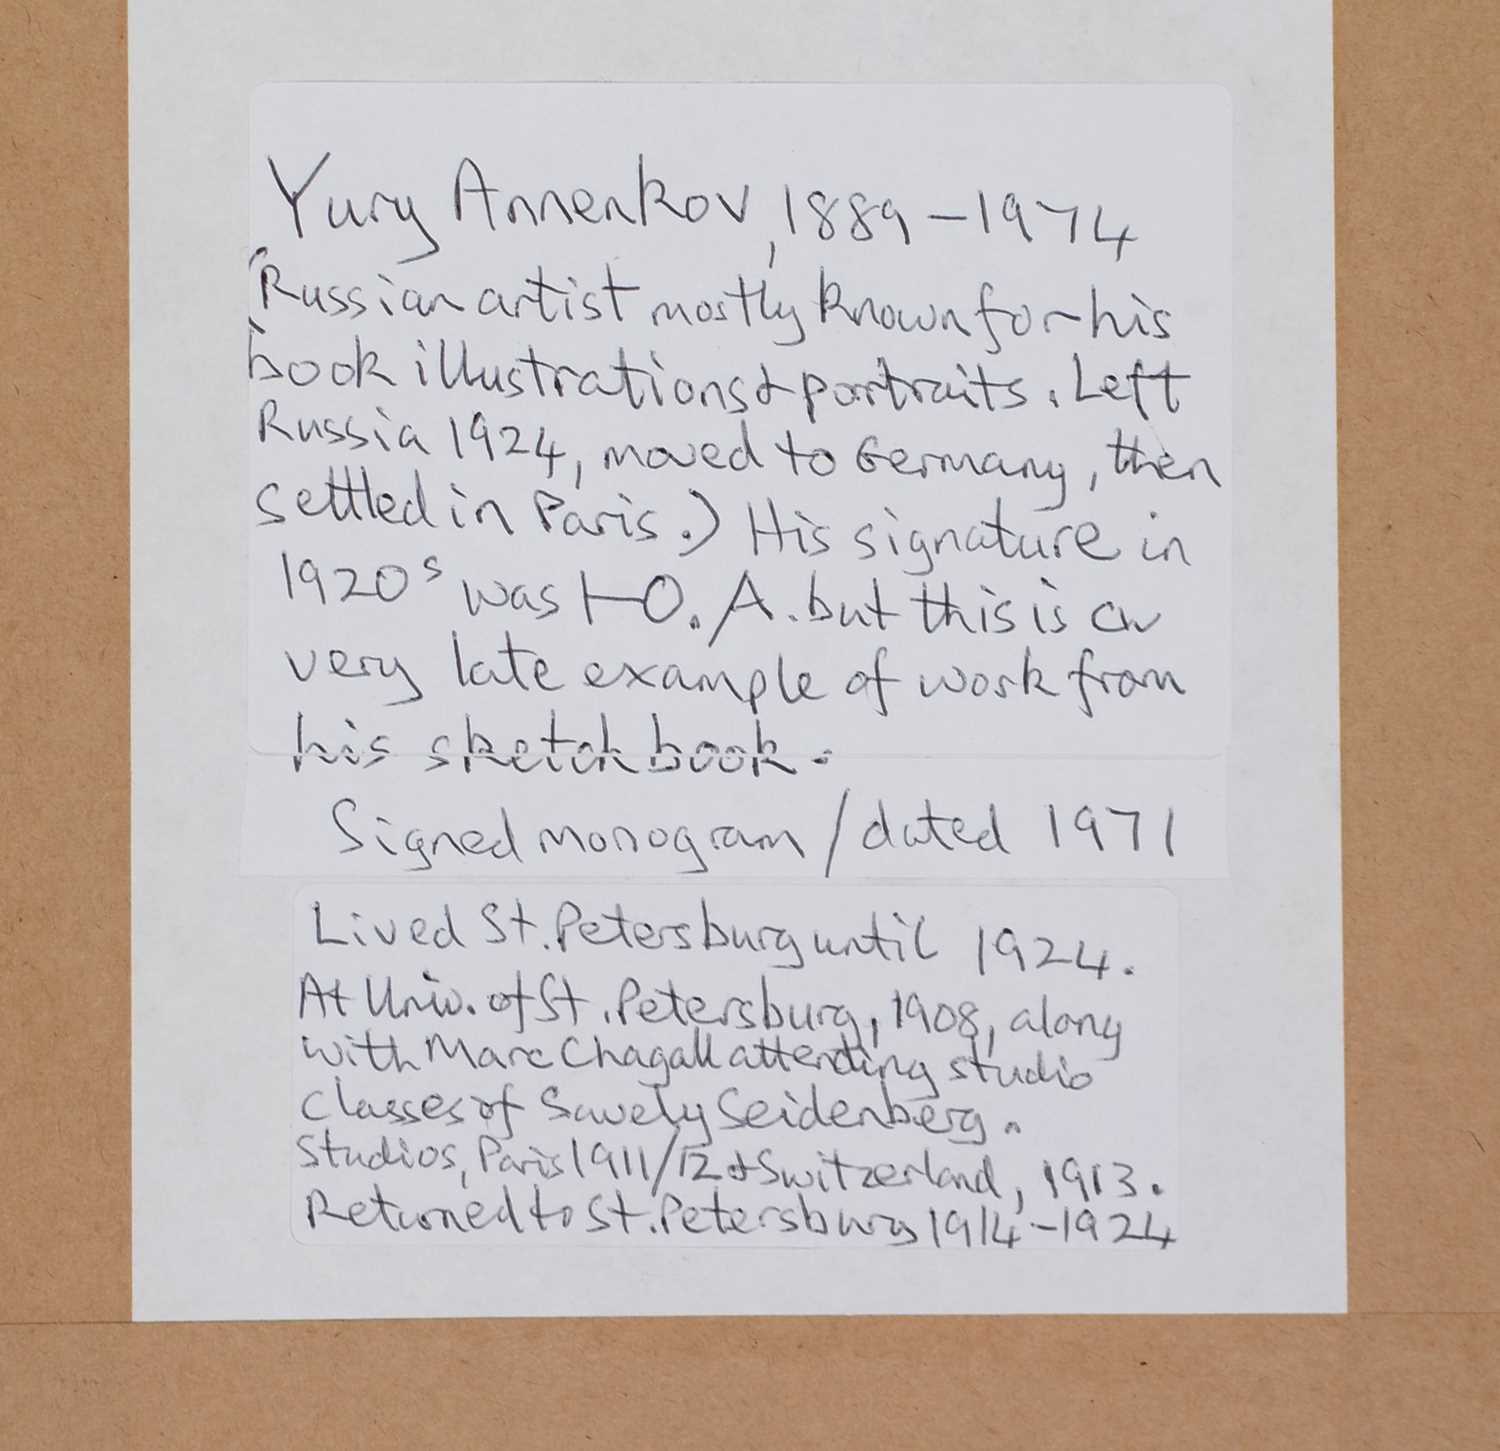 Yury Annenkov, 1889-1974
(Russian artist mostly known for his
book illustrations & portraits. Left
Russia 1924, moved to Germany, then
settled in Paris.) His signature in
1920s was Ю. A. but this is a
very late example of work from
his sketch book.
Signed monogram / dated 1971
Lived St. Petersburg until 1924.
At Univ. of St. Petersburg, 1908, along
with Marc Chagall attending studio
classes of Savely Seidenberg.
Studios, Paris 1911/12 & Switzerland, 1913.
Returned to St. Petersburg 1914-1924